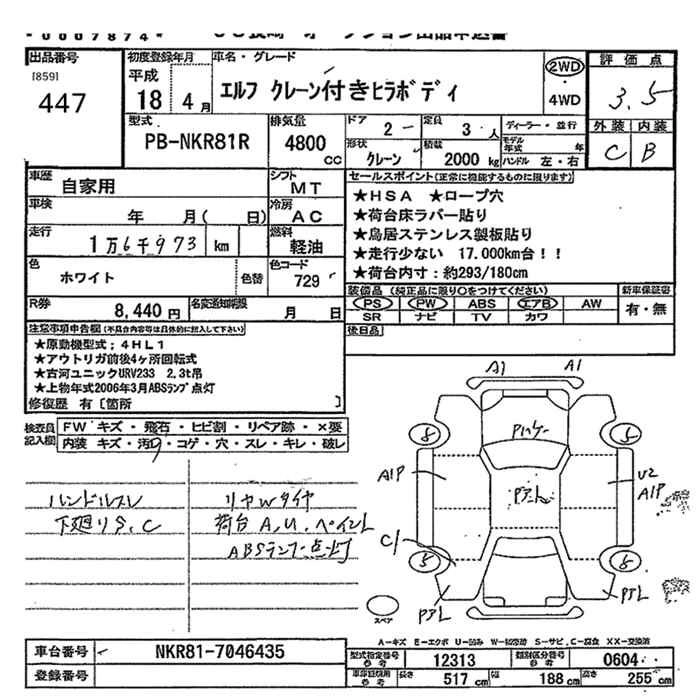 * 0007874 *
出品番号
[859]
447
初度登録年月
平成
18 年 4 月
車名・グレード
エルフ クレーン付きヒラボディ
2WD
・
4WD
評価点
3.5
外装 内装
C B
型式
PB-NKR81R
排気量
4800
cc
ドア 2
定員 3 人
ディーラー・並行
形状
クレーン
積載
2000 kg
モデル年式 年
ハンドル 左・右
車歴
自家用
シフト
MT
車検
年 月( 日)
冷房
AC
走行
1万6千973 km
燃料
軽油
色
ホワイト
色替
色コード
729
R券
8,440 円
名変通知期限
月 日
セールスポイント(正常に機能するものに限ります)
★HSA ★ロープ穴
★荷台床ラバー貼り
★鳥居ステンレス製板貼り
★走行少ない 17.000km台!!
★荷台内寸:約293/180cm
装備品(純正品に限り○をつけてください)
PS PW ABS エアB AW
SR ナビ TV カワ
新車保証書
有・無
後日品
注意事項申告欄(不具合内容等は具体的に記入して下さい)
★原動機型式;4HL1
★アウトリガ前後4ヶ所回転式
★古河ユニックURV233 2.3t吊
★上物年式2006年3月ABSランプ点灯
修復歴 有〔箇所 〕
検査員記入欄
FW キズ・飛石・ヒビ割・リペア跡・×要
内装 キズ・汚れ・コゲ・穴・スレ・キレ・破レ
ハンドルスレ
下廻りS.C
リヤWタイヤ
荷台 A.U.ペイント
ABSランプ点灯
A1 A1
8 5
A1P
U2
A1P
C1
5 8
スペア
A-キズ E-エクボ U-凹み W-補修跡 S-サビ,C-腐食 XX-交換済
車台番号
NKR81-7046435
登録番号
型式指定番号
参考
12313
類別区分番号
参考
0604
車庫証明用
参考
長さ 517 cm 幅 188 cm 高さ 255 cm